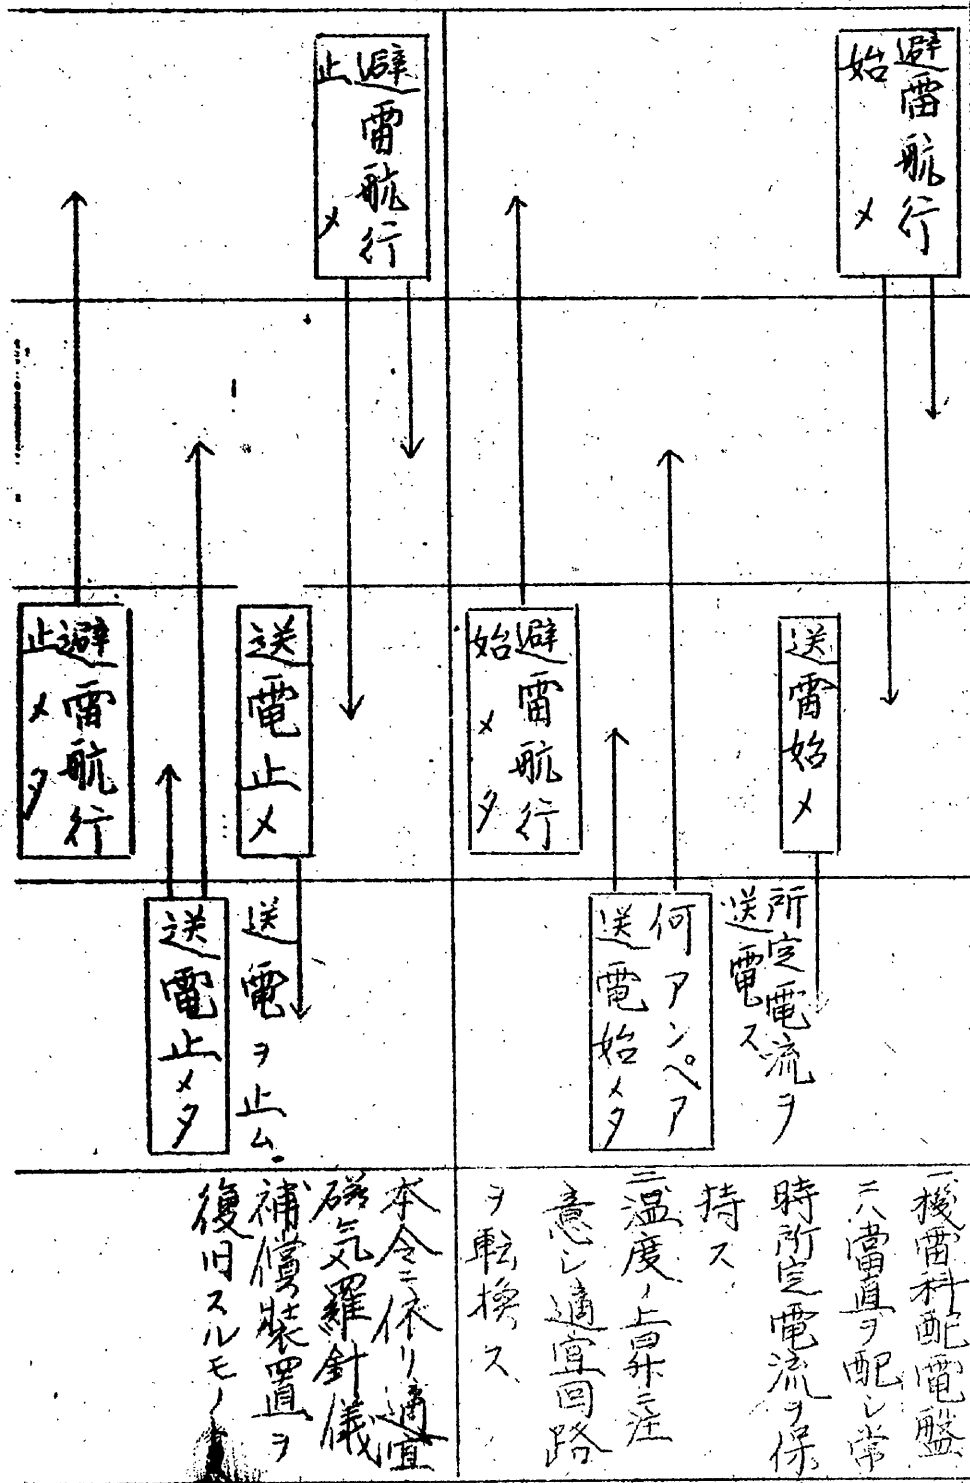 避雷航行
始メ
送雷始メ
所定電流ヲ
送電ス
何アンペア
送電始メタ
避雷航行
始メタ
二機雷科配電盤
ニハ當直ヲ配シ常
時所定電流ヲ保
持ス
三温度ノ上昇ニ注
意シ適宜回路
ヲ転換ス
避雷航行
止メ
送電止メ
送電ヲ止ム
送電止メタ
避雷航行
止メタ
本令ニ依リ適宜
磁気羅針儀
補償装置ヲ
復旧スルモノ